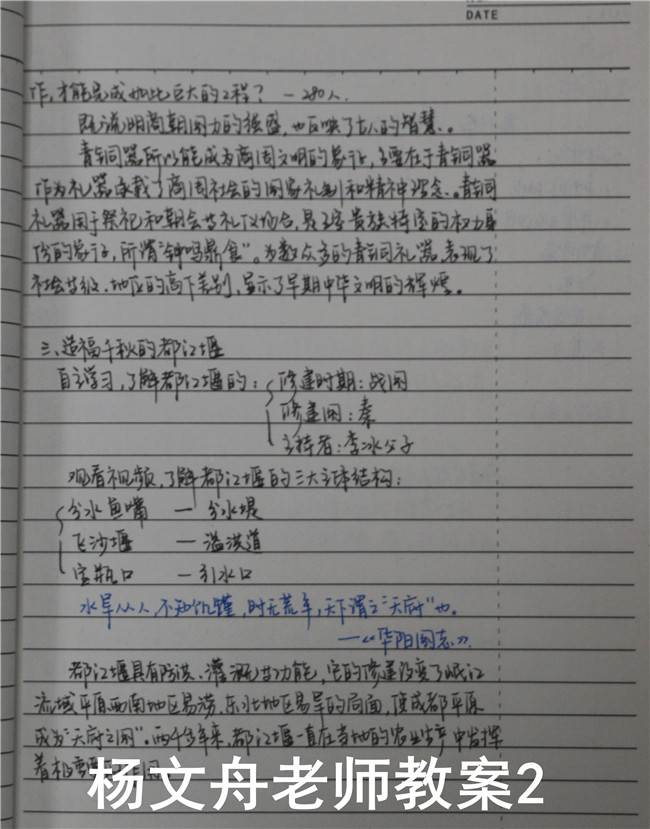 DATE
作,才能完成如此巨大的工程?—280人.
既说明商朝国力的强盛,也反映了古人的智慧。
青铜器所以能成为商周文明的象征,主要在于青铜器
作为礼器承载了商周社会的国家礼制和精神观念。青铜
礼器用于祭祀和朝会等礼仪场合,是王室贵族特定的权力身
份的象征,所谓"钟鸣鼎食"。为数众多的青铜礼器,表现了
社会等级、地位的高下差别,显示了早期中华文明的辉煌。
三、造福千秋的都江堰
自主学习,了解都江堰的:修建时期:战国
修建国:秦
主持者:李冰父子
观看视频,了解都江堰的三大主体结构:
分水鱼嘴 — 分水堤
飞沙堰 — 溢洪道
宝瓶口 — 引水口
水旱从人,不知饥馑,时无荒年,天下谓之"天府"也.
—《华阳国志》.
都江堰具有防洪、灌溉等功能,它的修建改变了岷江
流域平原西南地区易涝、东北地区易旱的局面,使成都平原
成为"天府之国"。两千多年来,都江堰一直在当地的农业生产中发挥
着
杨文舟老师教案2